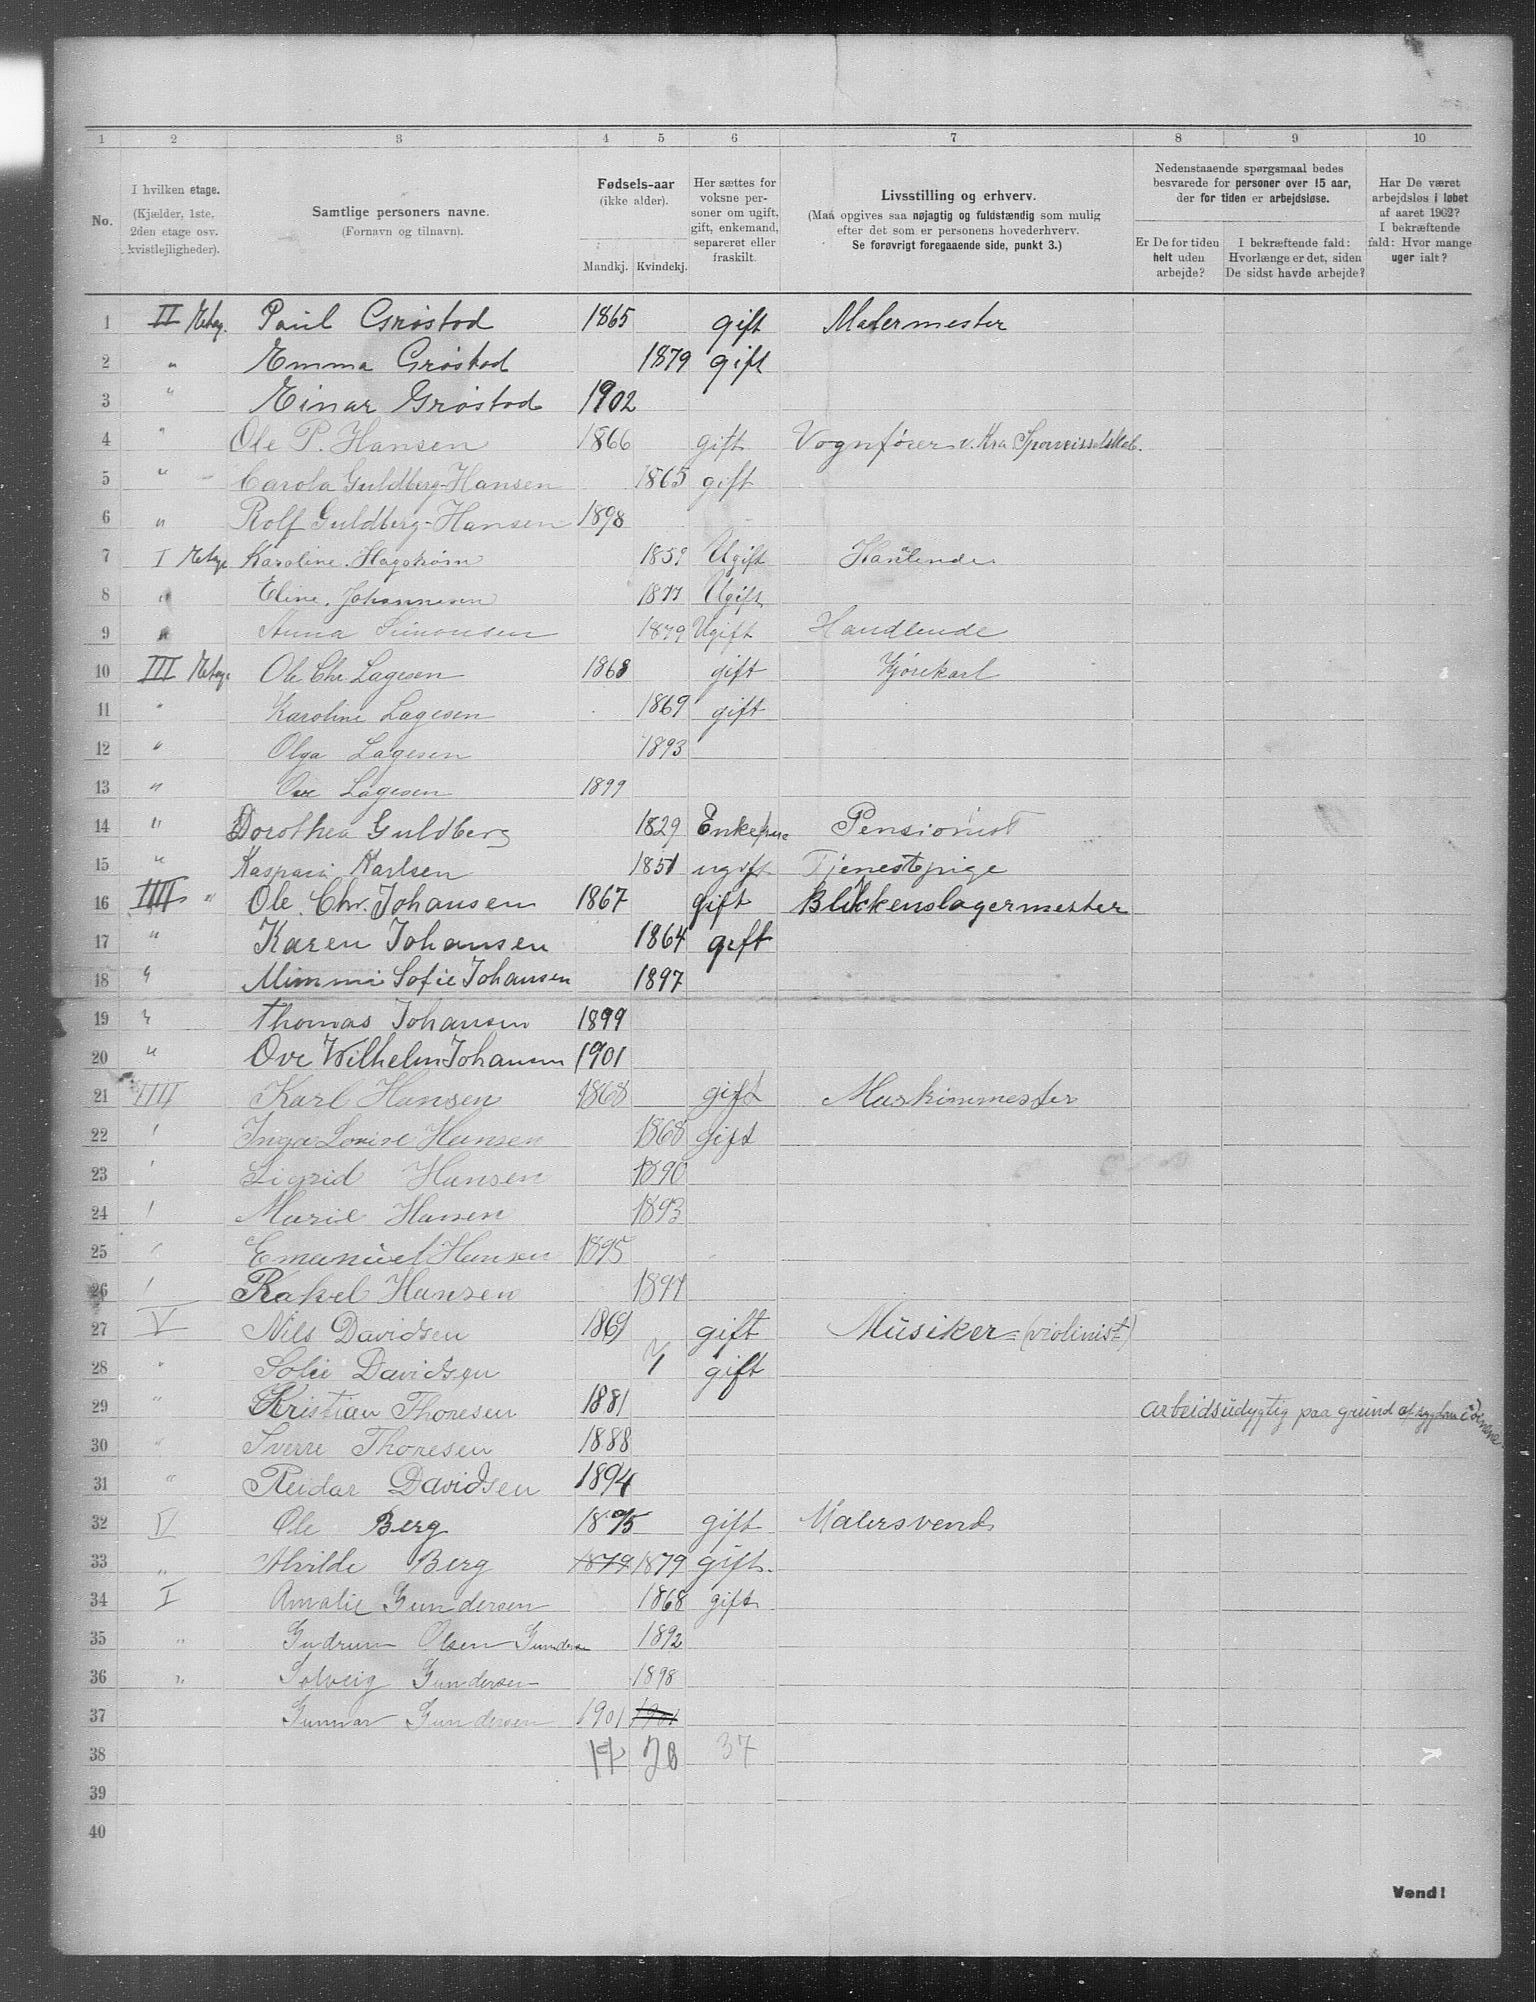 1 2 3 4 5 6 7 8 9 10
No.
I hvilken etage. (Kjælder, 1ste, 2den etage osv. kvistlejligheder).
Samtlige personers navne. (Fornavn og tilnavn).
Fødsels-aar (ikke alder). Mandkj. Kvindekj.
Her sættes for voksne personer om ugift, gift, enkemand, separeret eller fraskilt.
Livsstilling og erhverv. (Maa opgives saa nøjagtig og fuldstændig som mulig efter det som er personens hovederhverv. Se forøvrigt foregaaende side, punkt 3.)
Nedenstaaende spørgsmaal bedes besvarede for personer over 15 aar, der for tiden er arbejdsløse.
Er De for tiden helt uden arbejde?
I bekræftende fald: Hvorlænge er det, siden De sidst havde arbejde?
Har De været arbejdsløs i løbet af aaret 1902? I bekræftende fald: Hvor mange uger ialt?
1 II Etag. Paul Grøstod 1865 gift Malermester
2 " Emma Grøstod 1879 gift
3 " Einar Grøstod 1902
4 " Ole P. Hansen 1866 gift Vognfører v. Kra Sporveisselskab.
5 " Carola Guldberg-Hansen 1865 gift
6 " Rolf Guldberg-Hansen 1898
7 I Etage Karoline Hagstrøm 1859 Ugift Hantlende
8 " Eline Johannesen 1877 Ugift
9 " Anna Simonsen 1879 Ugift Handlende
10 III Etage Ole Chr Lagesen 1868 gift Kjørekarl
11 " Karoline Lagesen 1869 gift
12 " Olga Lagesen 1893
13 " Ove Lagesen 1899
14 " Dorothea Guldberg 1829 Enkefrue Pensionist
15 " Kaspara Karlsen 1851 ugift Tjenestepige
16 IIII " Ole Chr. Johansen 1867 gift Blikkenslagermester
17 " Karen Johansen 1864 gift
18 " Mimmi Sofie Johansen 1897
19 " Thomas Johansen 1899
20 " Ove Wilhelm Johansen 1901
21 IIII Karl Hansen 1868 gift Maskinmester
22 " Inga Lovise Hansen 1868 gift
23 " Sigrid Hansen 1890
24 " Marie Hansen 1893
25 " Emanuel Hansen 1895
26 " Rakel Hansen 1897
27 V Nils Davidsen 1869 gift Musiker (violinist)
28 " Sofie Davidsen gift
29 " Kristian Thoresen 1881 arbeidsudygtig paa grund af sygdom i
30 " Sverre Thoresen 1888
31 " Reidar Davidsen 1894
32 V Ole Berg 1875 gift Malersvend
33 " Alvilde Berg 1879 1879 gift.
34 I Amalie Gundersen 1868 gift
35 " Gudrun Olsen Gunders 1892
36 " Solveig Gundersen 1898
37 Gunnar Gundersen 1901 1901
38 17 20 37
39
40
Vend!